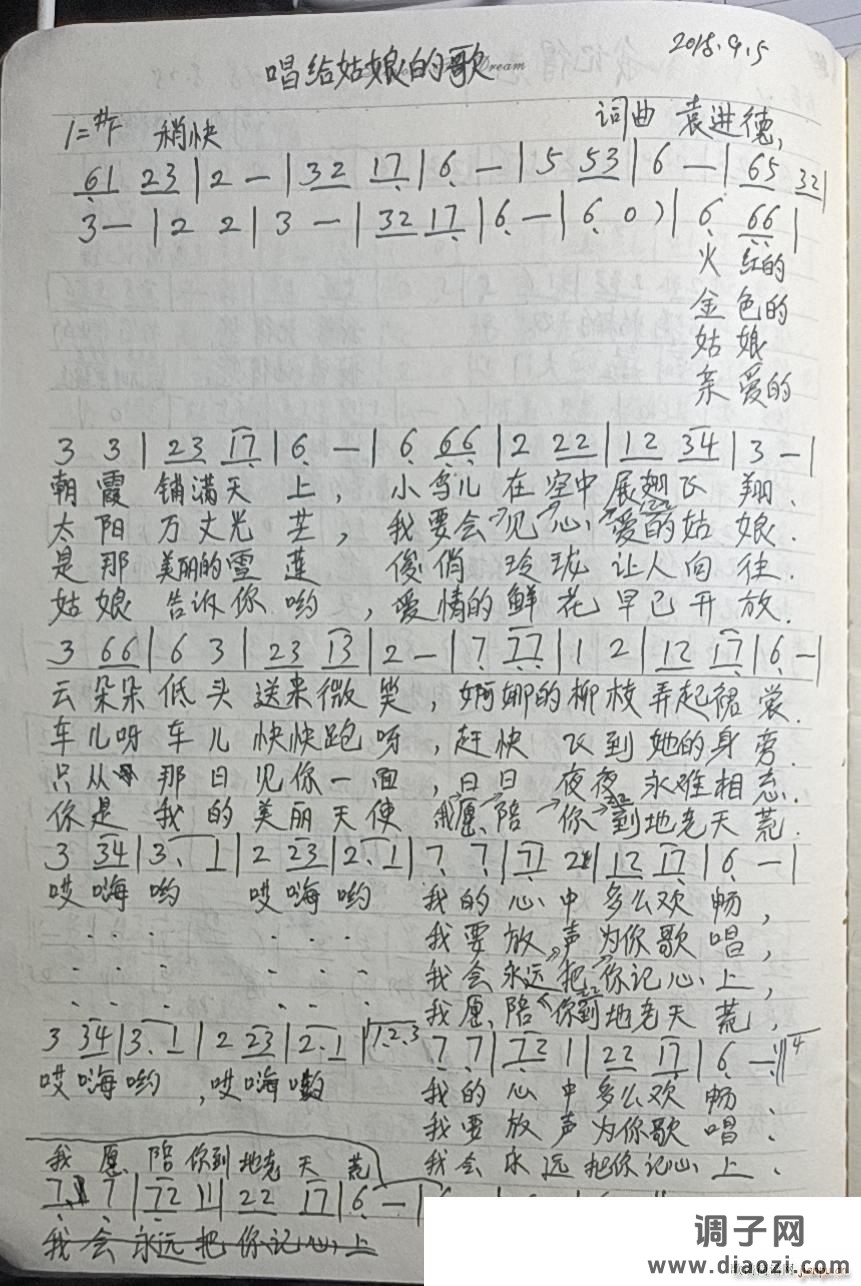 2018.9.5
唱给姑娘的歌 Dream
词曲 袁进德
1=#F 稍快
61 23 | 2 — | 32 17 | 6 — | 5 53 | 6 — | 65 32 |
3 — | 2 2 | 3 — | 32 17 | 6 — | 6 0 ) | 6 66 |
火 红的
金 色的
姑 娘
亲 爱的
3 3 | 23 17 | 6 — | 6 66 | 2 22 | 12 34 | 3 — |
朝霞 铺满天上, 小鸟儿在空中展翅飞翔.
太阳万丈光芒, 我要会见心爱的姑娘.
是那美丽的雪莲 俊俏玲珑让人向往.
姑娘告诉你哟, 爱情的鲜花早已开放.
3 66 | 6 3 | 23 13 | 2 — | 7 77 | 1 2 | 12 17 | 6 — |
云朵朵低头送来微笑, 婀娜的柳枝弄起裙裳.
车儿呀车儿快快跑呀, 赶快飞到她的身旁.
只从那日见你一面, 日日夜夜永难相忘.
你是我的美丽天使 我愿陪你到地老天荒.
3 34 | 3. 1 | 2 23 | 2. 1 | 7 7 | 71 2 | 12 17 | 6 — |
哎嗨哟 哎嗨哟 我的心中多么欢畅,
我要放声为你歌唱,
我会永远把你记心上,
我愿陪你到地老天荒,
3 34 | 3. 1 | 2 23 | 2. 1 | 1.2.3 7 7 | 72 1 | 22 17 | 6 — :‖ 4
哎嗨哟, 哎嗨 我的心中多么欢畅.
我要放声为你歌唱.
我愿陪你到地老天荒 我会永远把你记心上.
7 7 | 72 1 | 22 17 | 6 — |
我会永远把你记心上
调子网
www.diaozi.com